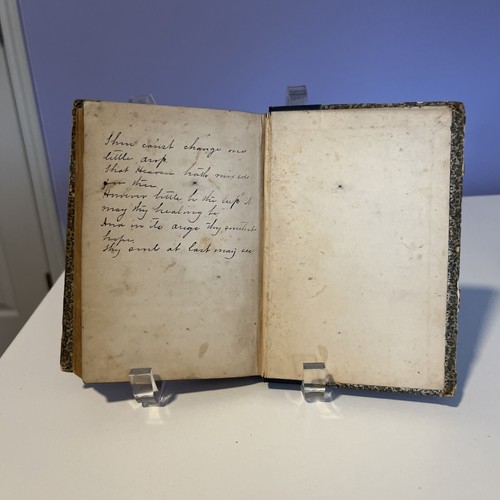 Thou canst change one
little drop
That Heaven hath mixed
for thee
However little be the cup it
may thy healing be
And in its angel thy
hope
thy soul at last may see